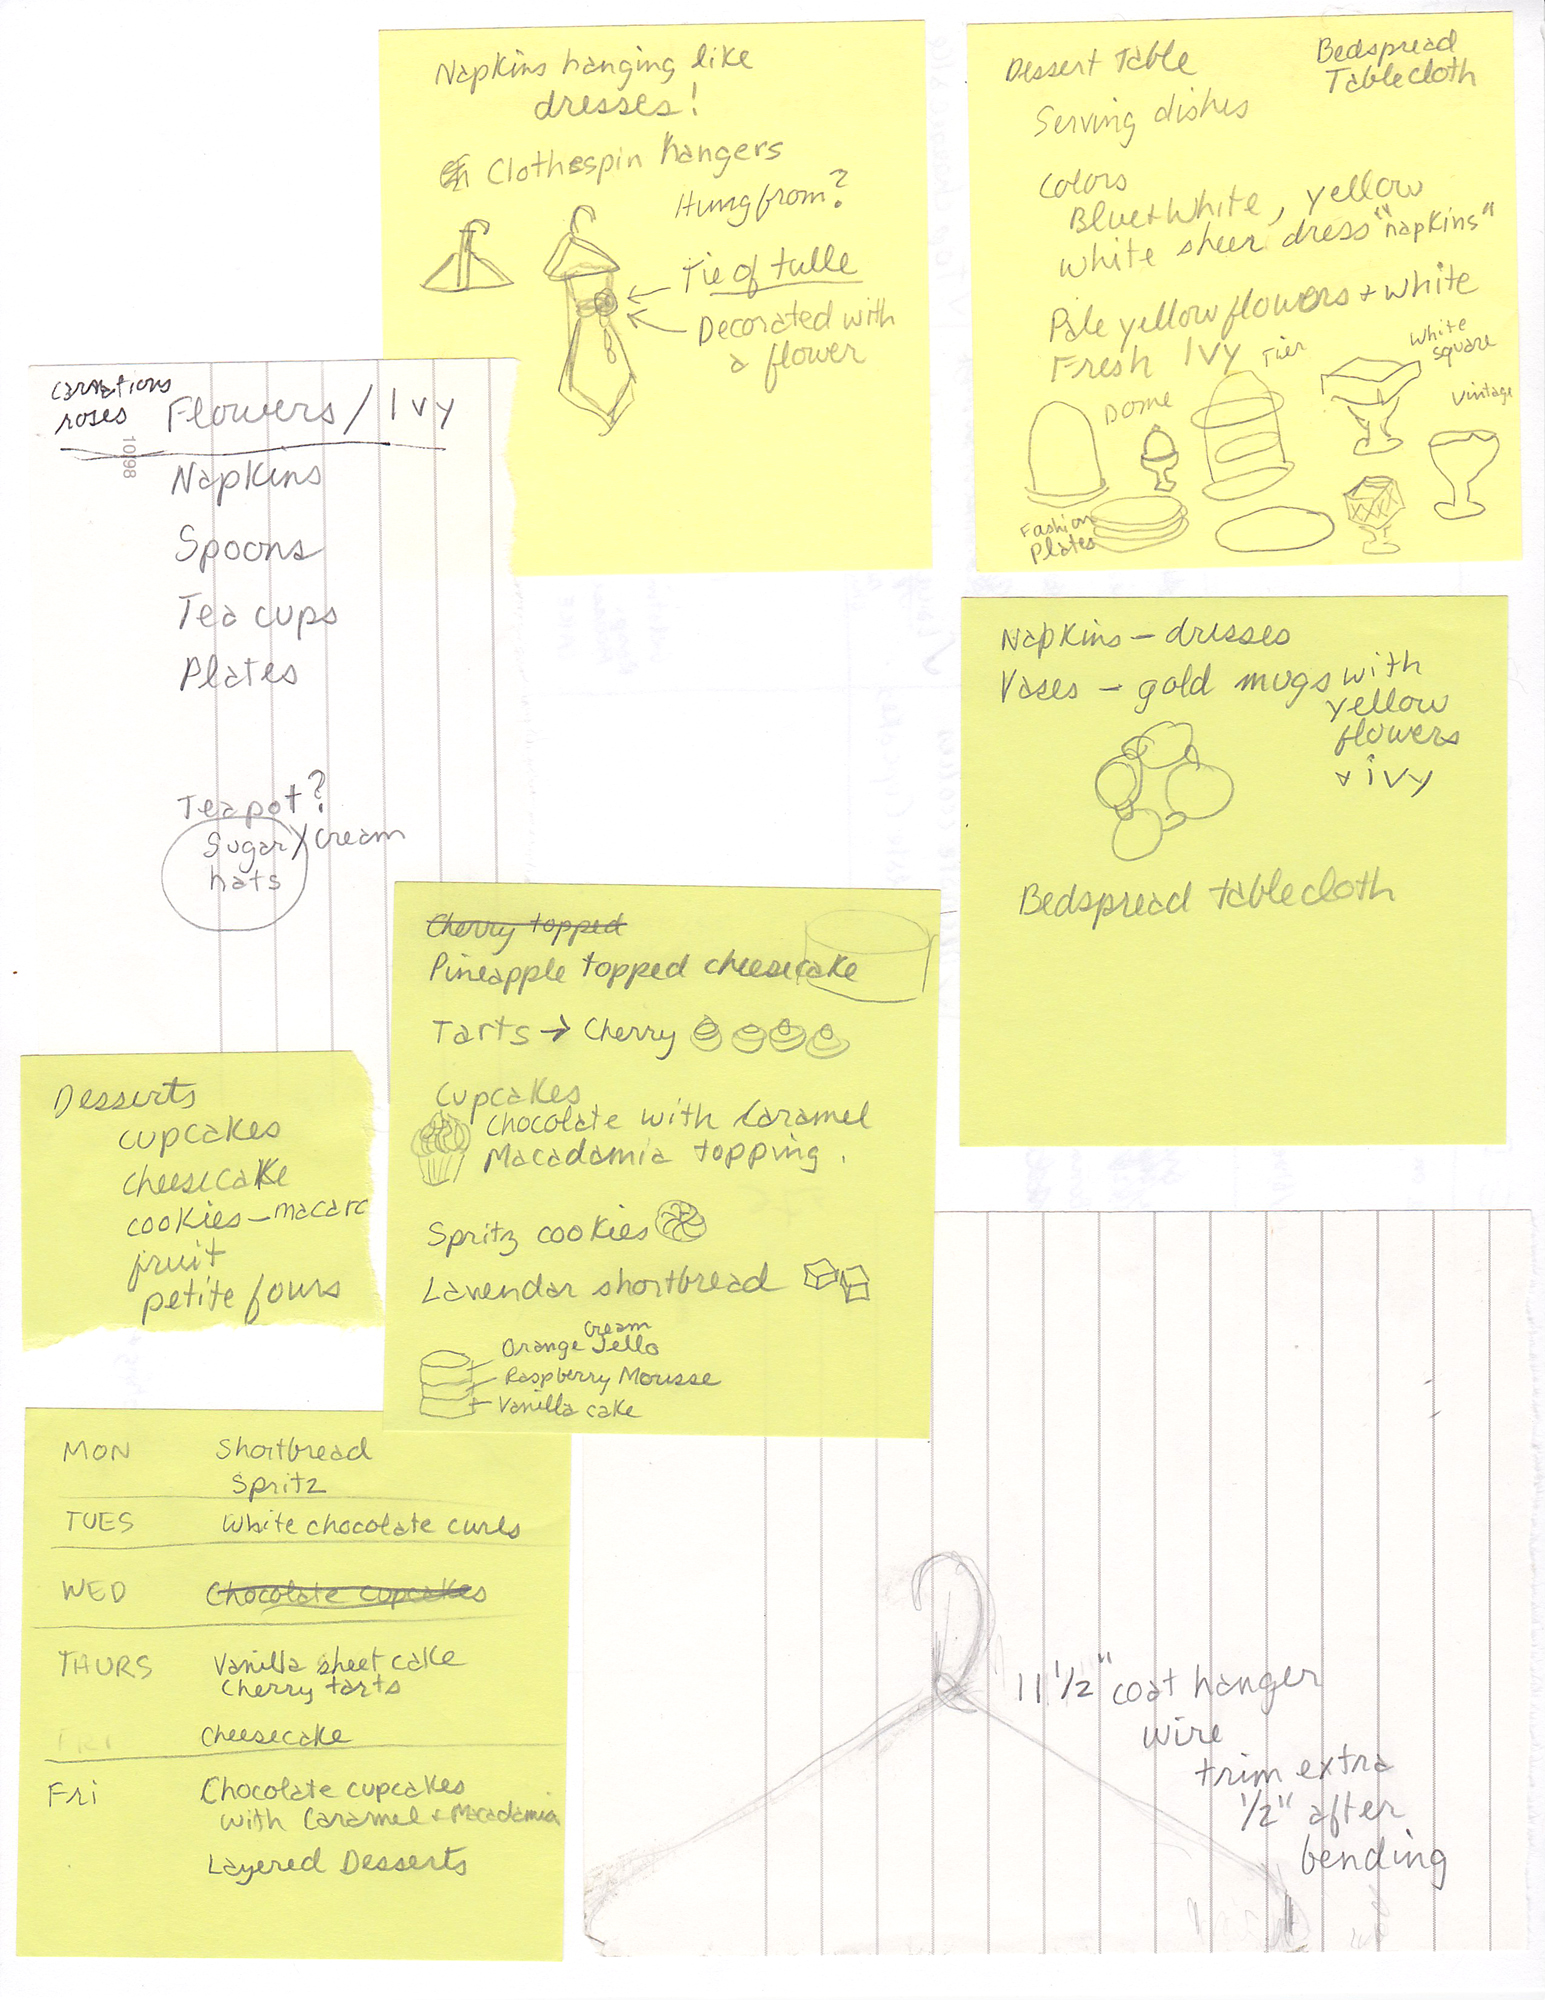 Napkins hanging like
dresses!
Clothespin hangers
Hung from?
Tie of tulle
Decorated with
a flower
Dessert Table
Bedspread
Tablecloth
Serving dishes
Colors
Blue + White, yellow
white sheer dress "napkins"
Pale yellow flowers + white
Fresh Ivy
Tier
White
square
Dome
Vintage
Fashion
Plates
carnations
roses
Flowers / Ivy
10/98
Napkins
Spoons
Tea cups
Plates
Teapot?
Sugar / cream
hats
Napkins - dresses
Vases - gold mugs with
yellow
flowers
+ ivy
Bedspread tablecloth
Cherry topped
Pineapple topped cheesecake
Tarts → Cherry
Cupcakes
Chocolate with Caramel
Macadamia topping.
Spritz cookies
Lavendar shortbread
Cream
Orange Jello
Raspberry Mousse
Vanilla cake
Desserts
cupcakes
cheesecake
cookies - macarc
fruit
petite fours
MON Shortbread
Spritz
TUES White chocolate curls
WED Chocolate cupcakes
THURS Vanilla sheet cake
Cherry tarts
FRI Cheesecake
Fri Chocolate cupcakes
with Caramel + Macadamia
Layered Desserts
11 1/2" coat hanger
wire
trim extra
1/2" after
bending